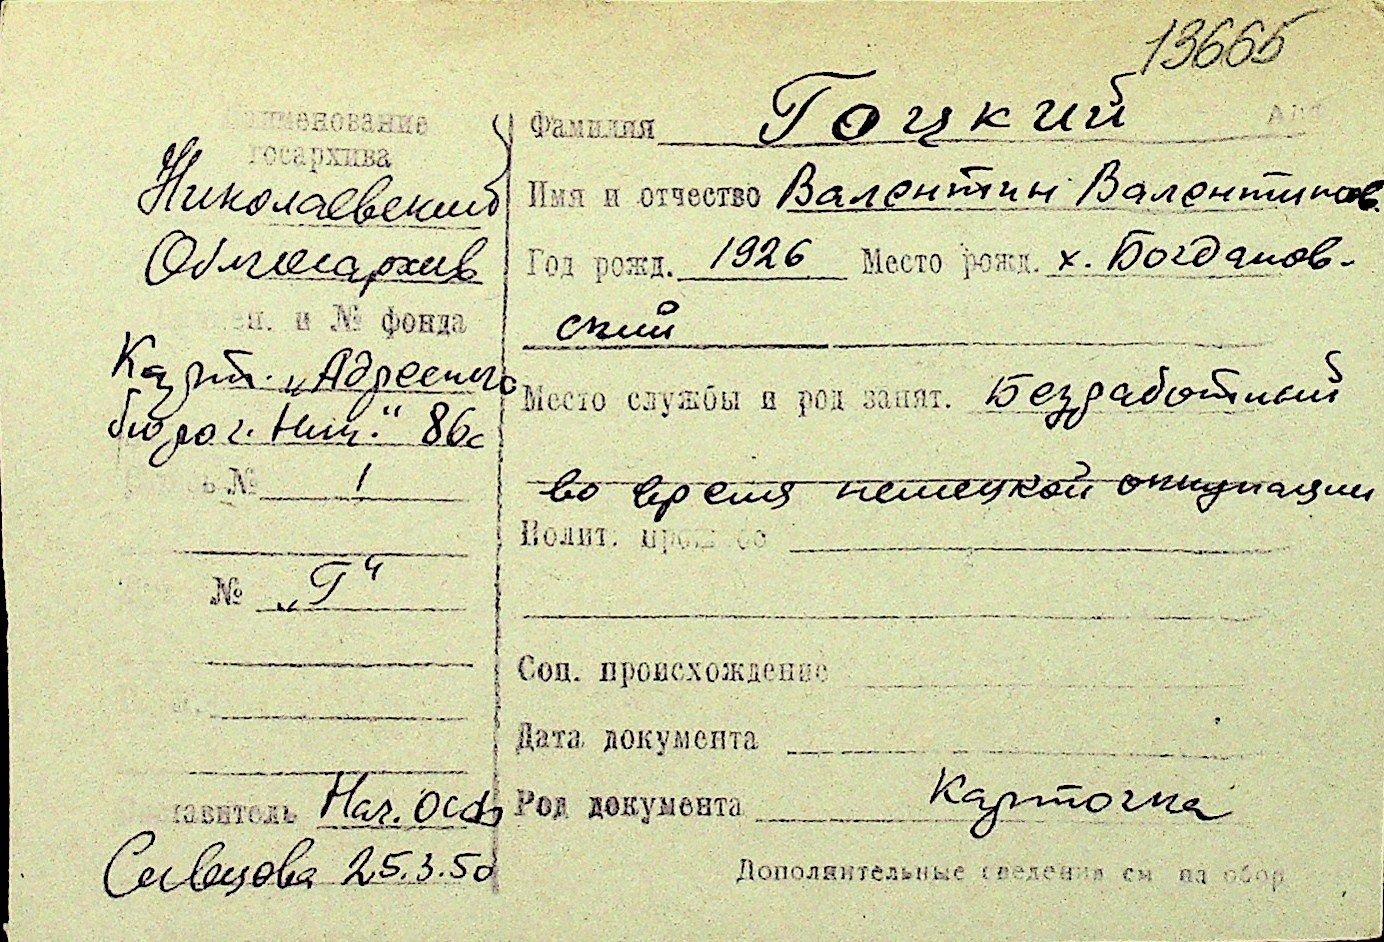 13665
Наименование
госархива
Николаевский
Облгосархив
и № фонда
Карт. „Адресного
бюро г. Ник.“ 86с
№ 1
№ „Г“
Составитель Нач. ОСФ
25.3.50
Фамилия Гоцкий
Имя и отчество Валентин Валентинов.
Год рожд. 1926 Место рожд. х. Богданов-
ский
Место службы и род занят. Безработный
во время немецкой оккупации
Полит. прошлое
Соц. происхождение
Дата документа
Род документа Карточка
Дополнительные сведения см на обор